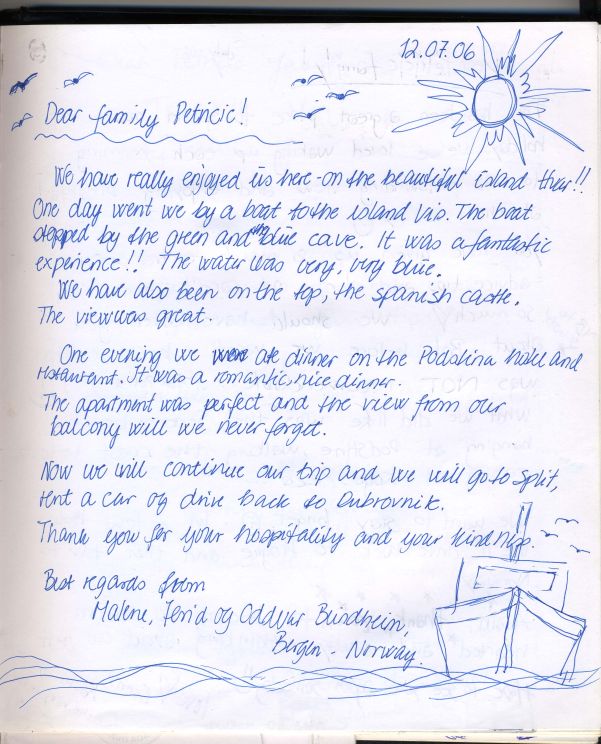 12.07.06
Dear family Petricic!
We have really enjoyed us here - on the beautiful island Hvar!!
One day went we by a boat to the island Vis. The boat
stopped by the green and the blue cave. It was a fantastic
experience!! The water was very, very blue.
We have also been on the top, the spanish castle.
The view was great.
One evening we ate dinner on the Podstina hotel and
restaurant. It was a romantic, nice dinner.
The apartment was perfect and the view from our
balcony will we never forget.
Now we will continue our trip and we will go to Split,
rent a car og drive back to Dubrovnik.
Thank you for your hospitality and your kindness.
Best regards from
Malene, og Oddvar
Bergen - Norway.